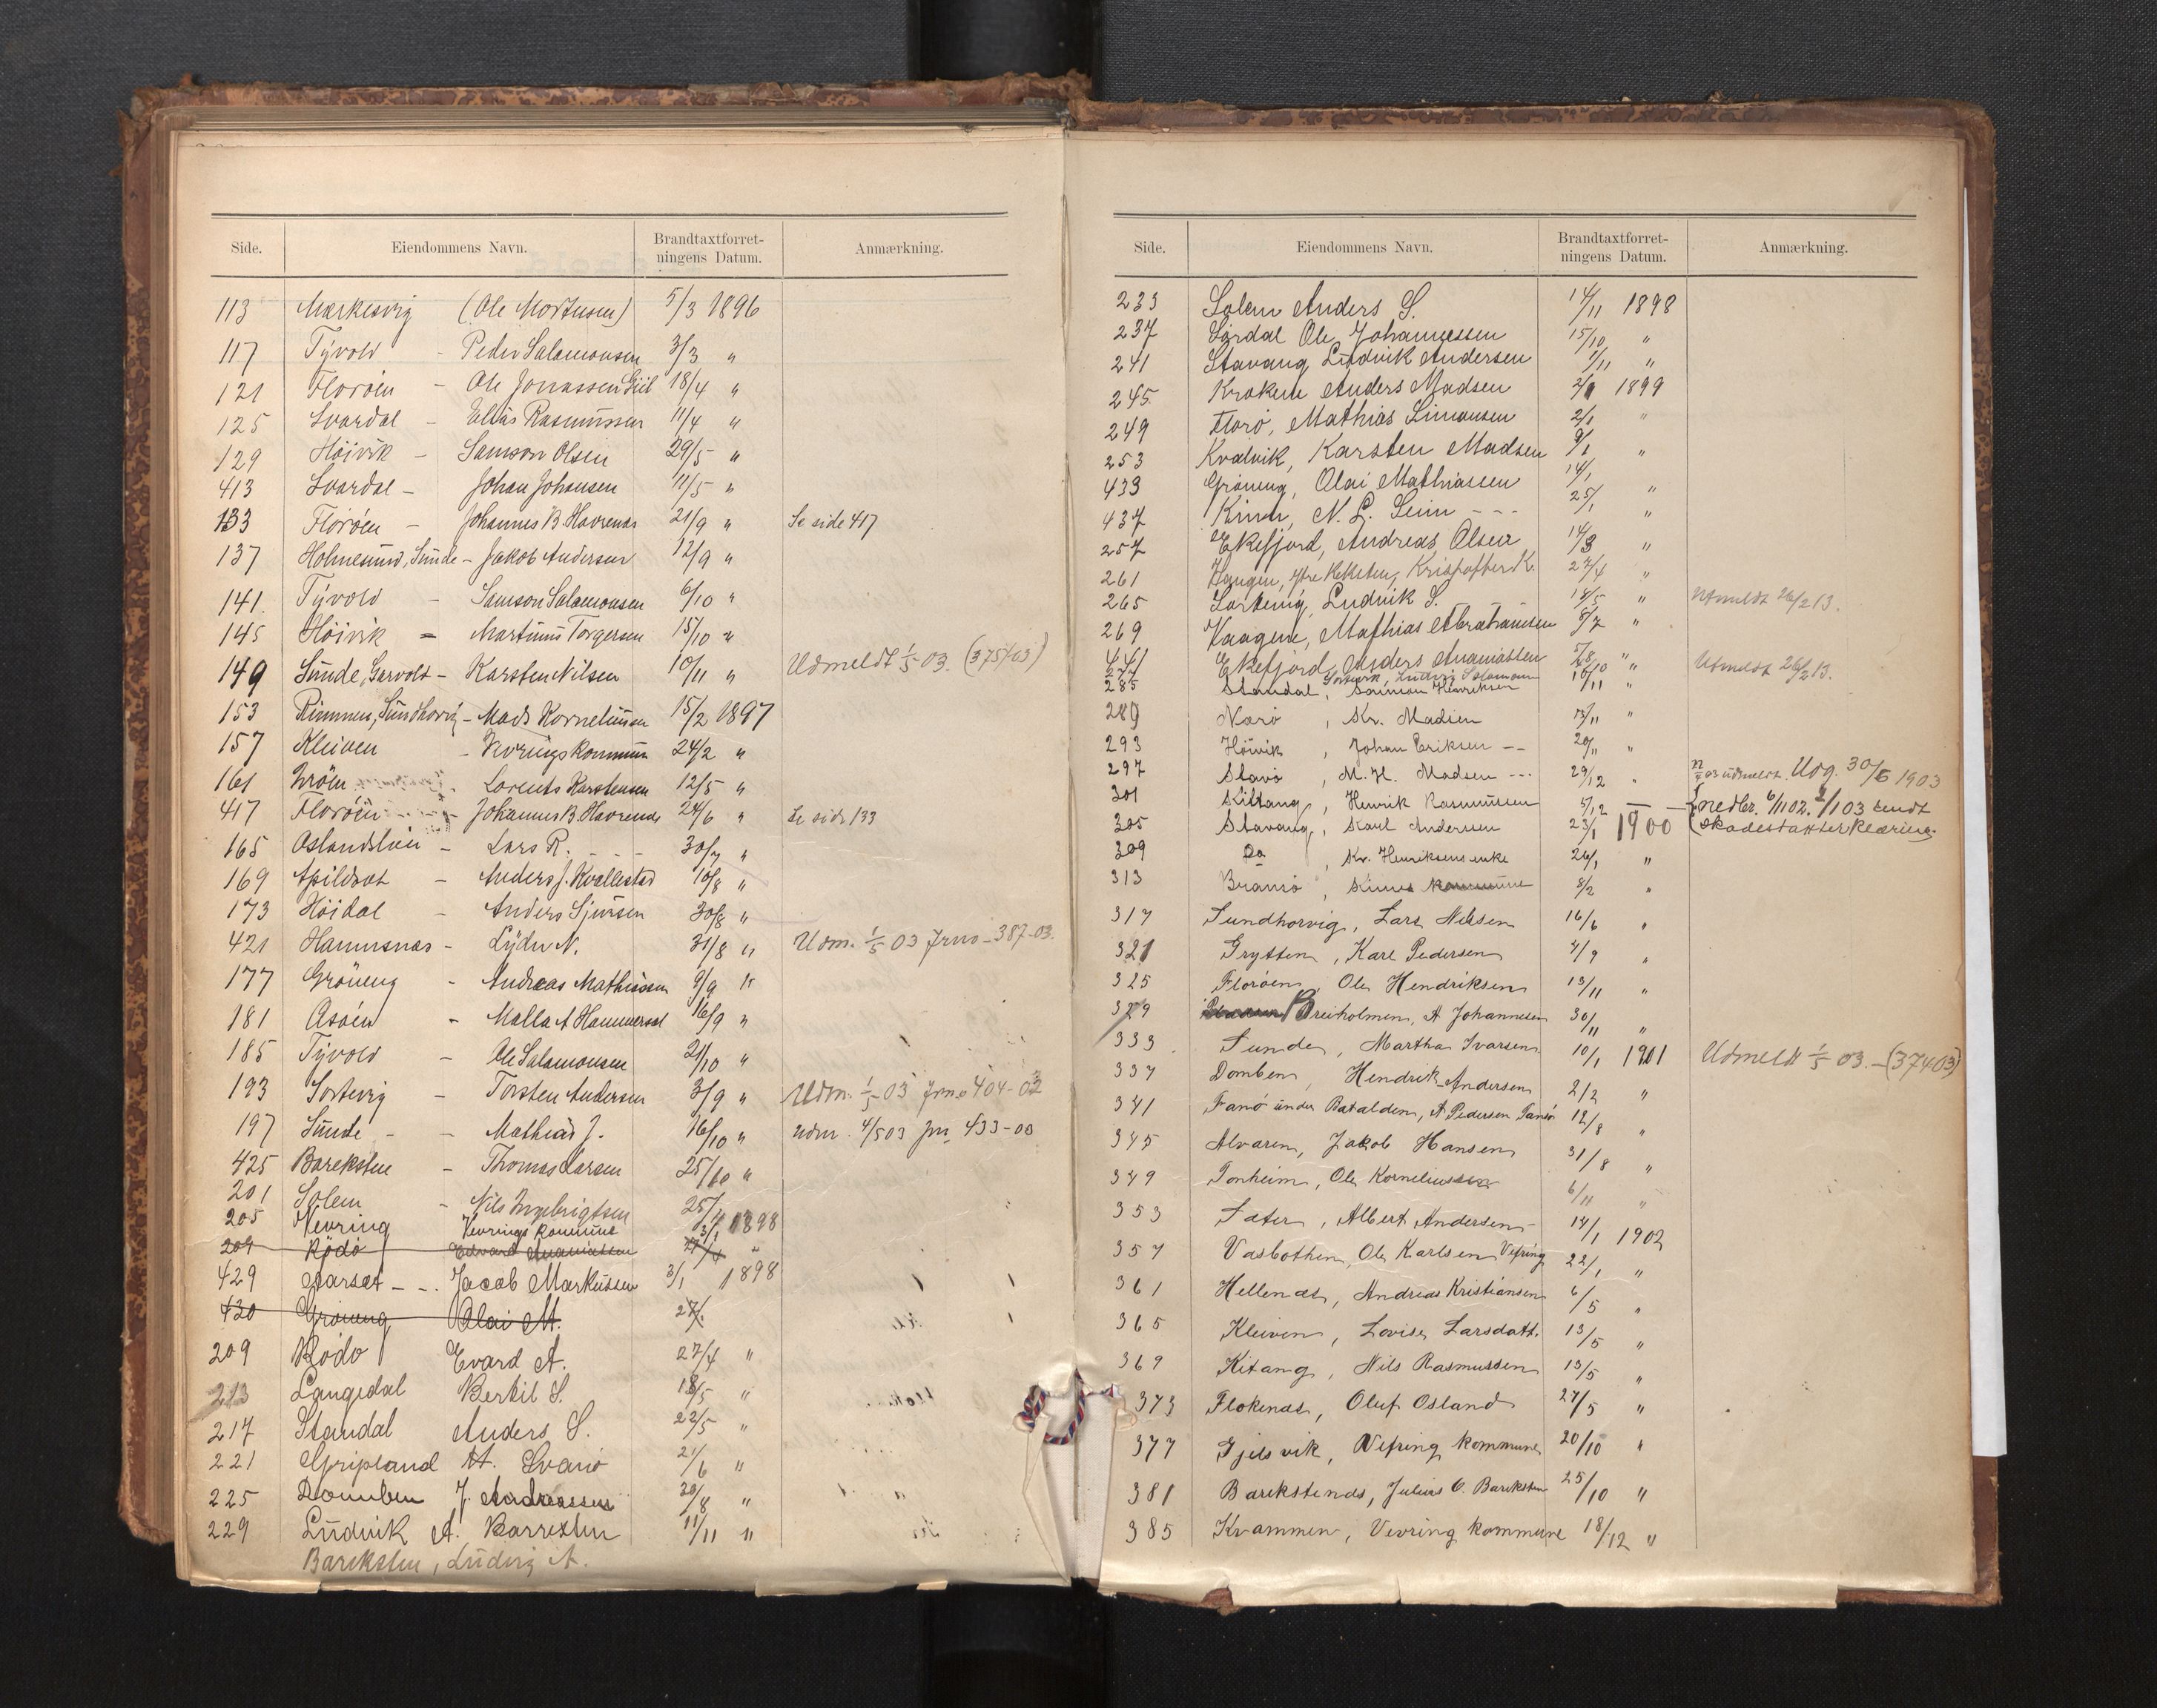 Side. Eiendommens Navn. Brandtaxtforret- ningens Datum. Anmærkning.
113 Markesvig (Ole Mortensen) 5/3 1896
117 Tyvold - Peder Salamonsen 3/3 "
121 Florøen - Ole Jonassen Giil 18/4 "
125 Svardal - Elias Rasmussen 11/4 "
129 Höivik - Samson Olsen 29/5 "
413 Svardal - Johan Johansen 11/5 "
133 Florøen - Johannes B. Havrenes 21/9 " Se side 417
137 Holmesund, Sunde - Jakob Andersen 12/9 "
141. Tyvold - Samson Salamonsen 6/10 "
145 Höivik - Martinus Torgersen 15/10 "
149 Sunde, Garvolt - Karsten Nilsen 10/11 " Udmeldt 1/5 03. (375/03)
153 Rimmen, Sundhorvig - Mads Korneliussen 15/2 1897
157 Kleiven - Vevrings kommun 24/2 "
161 - Lorents Karstensen 12/5 "
417 Florøen - Johannes B. Havrenes 24/6 " Se side 133
165 Oslandslien - Lars R. - - - 30/7 "
169 Apildset - Anders J. Kvellestad 10/8 "
173 Höidal - Anders Sjursen 30/8 "
421 Hammsnæs - Lyder N. 31/8 " Udm. 1/5 03 Jrno - 387-03.
177 Gröneng - Andreas Mathiasen 9/9 "
181 Asøen - Malla A Hammerset 16/9 "
185 Tyvold - Ole Salamonsen 21/10 "
193 Sortevig - Torsten Andersen 3/9 " Udm. 1/5 03 Jrno 404-03
197 Sunde - - Mathias J. 16/10 " udm. 4/503 jrn 433-03
425 Barekstn - Thomas Larsen 25/10 "
201 Solem - Nils Ingebrigtsen 25/11
205 Vevring Vevrings kommune 3/1 1898
209 Rödö Edvard Ananiassen 27/4 "
429 Aarset - - . Jacob Markussen 3/1 1898
430 Gröneng Olai M. 27/
209 Rödö Evard A. 27/4 "
213 Langedal Bertil S. 18/5 "
217 Standal Anders S. 22/5 "
221 Gripland H. Svanö 21/6 "
225 Domben J. Andreassen 20/8 "
229 Ludvik A. Barrexten 11/11 "
Bareksten, Ludvig A.
Side. Eiendommens Navn. Brandtaxtforret- ningens Datum. Anmærkning.
233 Solem Anders S. 14/11 1898
237 Sördal Ole Johannessen 15/10 "
241 Stavang Ludvik Andersen 1/11 "
245 Krokene Anders Madsen 2/1 1899
249 Florö, Mathias Simonsen 2/1 "
253 Kvalvik, Karsten Madsen 9/1 "
433 Gröneng, Olai Mathiassen 14/1 "
437 Kinn, N. L. Seim - - - 25/1 "
257 Ekefjord, Andreas Olsen 14/3 "
261 Haugen, ytre Reksten, Kristoffer K. 27/4 "
265 Sortevig, Ludvik S. 14/5 " Utmeldt 26/2 13.
269 Vaagene, Mathias Abrahamsen 8/7 "
441 Ekefjord, Anders Ananiassen 5/8 "
277 Sortevik, Ludvig Salamonsen /10 " Utmeldt 26/2 13.
285 Standal, Salomon Henriksen 10/11 "
289 Narö, Kr. Madsen 13/11 "
293 Höivik, Johan Eriksen -- 20/11 "
297 Stavö, M. H. Madsen --- 29/12 " udmeldt. Udg. 30/5 1903
301 Kittang, Henrik Rasmussen 5/12 — — nedbr. 6/1102. 2/103 sendt
305 Stavang, Karl Anderssen 23/1 1900 skadestakterklæring.
309 Do, Kr. Henriksens enke 26/1 "
313 Bransö, Kinns kommune 8/2 "
317 Sundhorvig, Lars Nilsen 16/6 "
321 Grytten, Karl Pedersen 4/9 "
325 Florøen, Ole Hendriksen 13/11 "
329 Breiholmen, A Johannesen 30/11 "
333 Sunde, Martha Ivarsen 10/1 1901 Udmeldt 1/5 03. - (37403)
337 Domben, Hendrik Andersen 2/2 "
341 Fanö under Batalden, A Pedersen Fanö 12/8 "
345 Alvaren, Jakob Hansen 31/8 "
349 Tonheim, Ole Korneliussen 6/11 "
353 Sater, Albert Andersen 14/1 1902
357 Vasbotnen, Ole Karlsen Vefring 22/1 "
361 Hellenæs, Andreas Kristiansen 6/5 "
365 Kleiven, Lovise Larsdatt. 13/5 "
369 Kitang, Nils Rasmussen 13/5 "
373 Flokenæs, Oluf Osland 27/5 "
377 Gjelsvik, Vefring kommune 20/10 "
381 Barekstenæs, Julius O. Bareksten 25/10 "
385 Kvammen, Vevring kommune 18/12 "